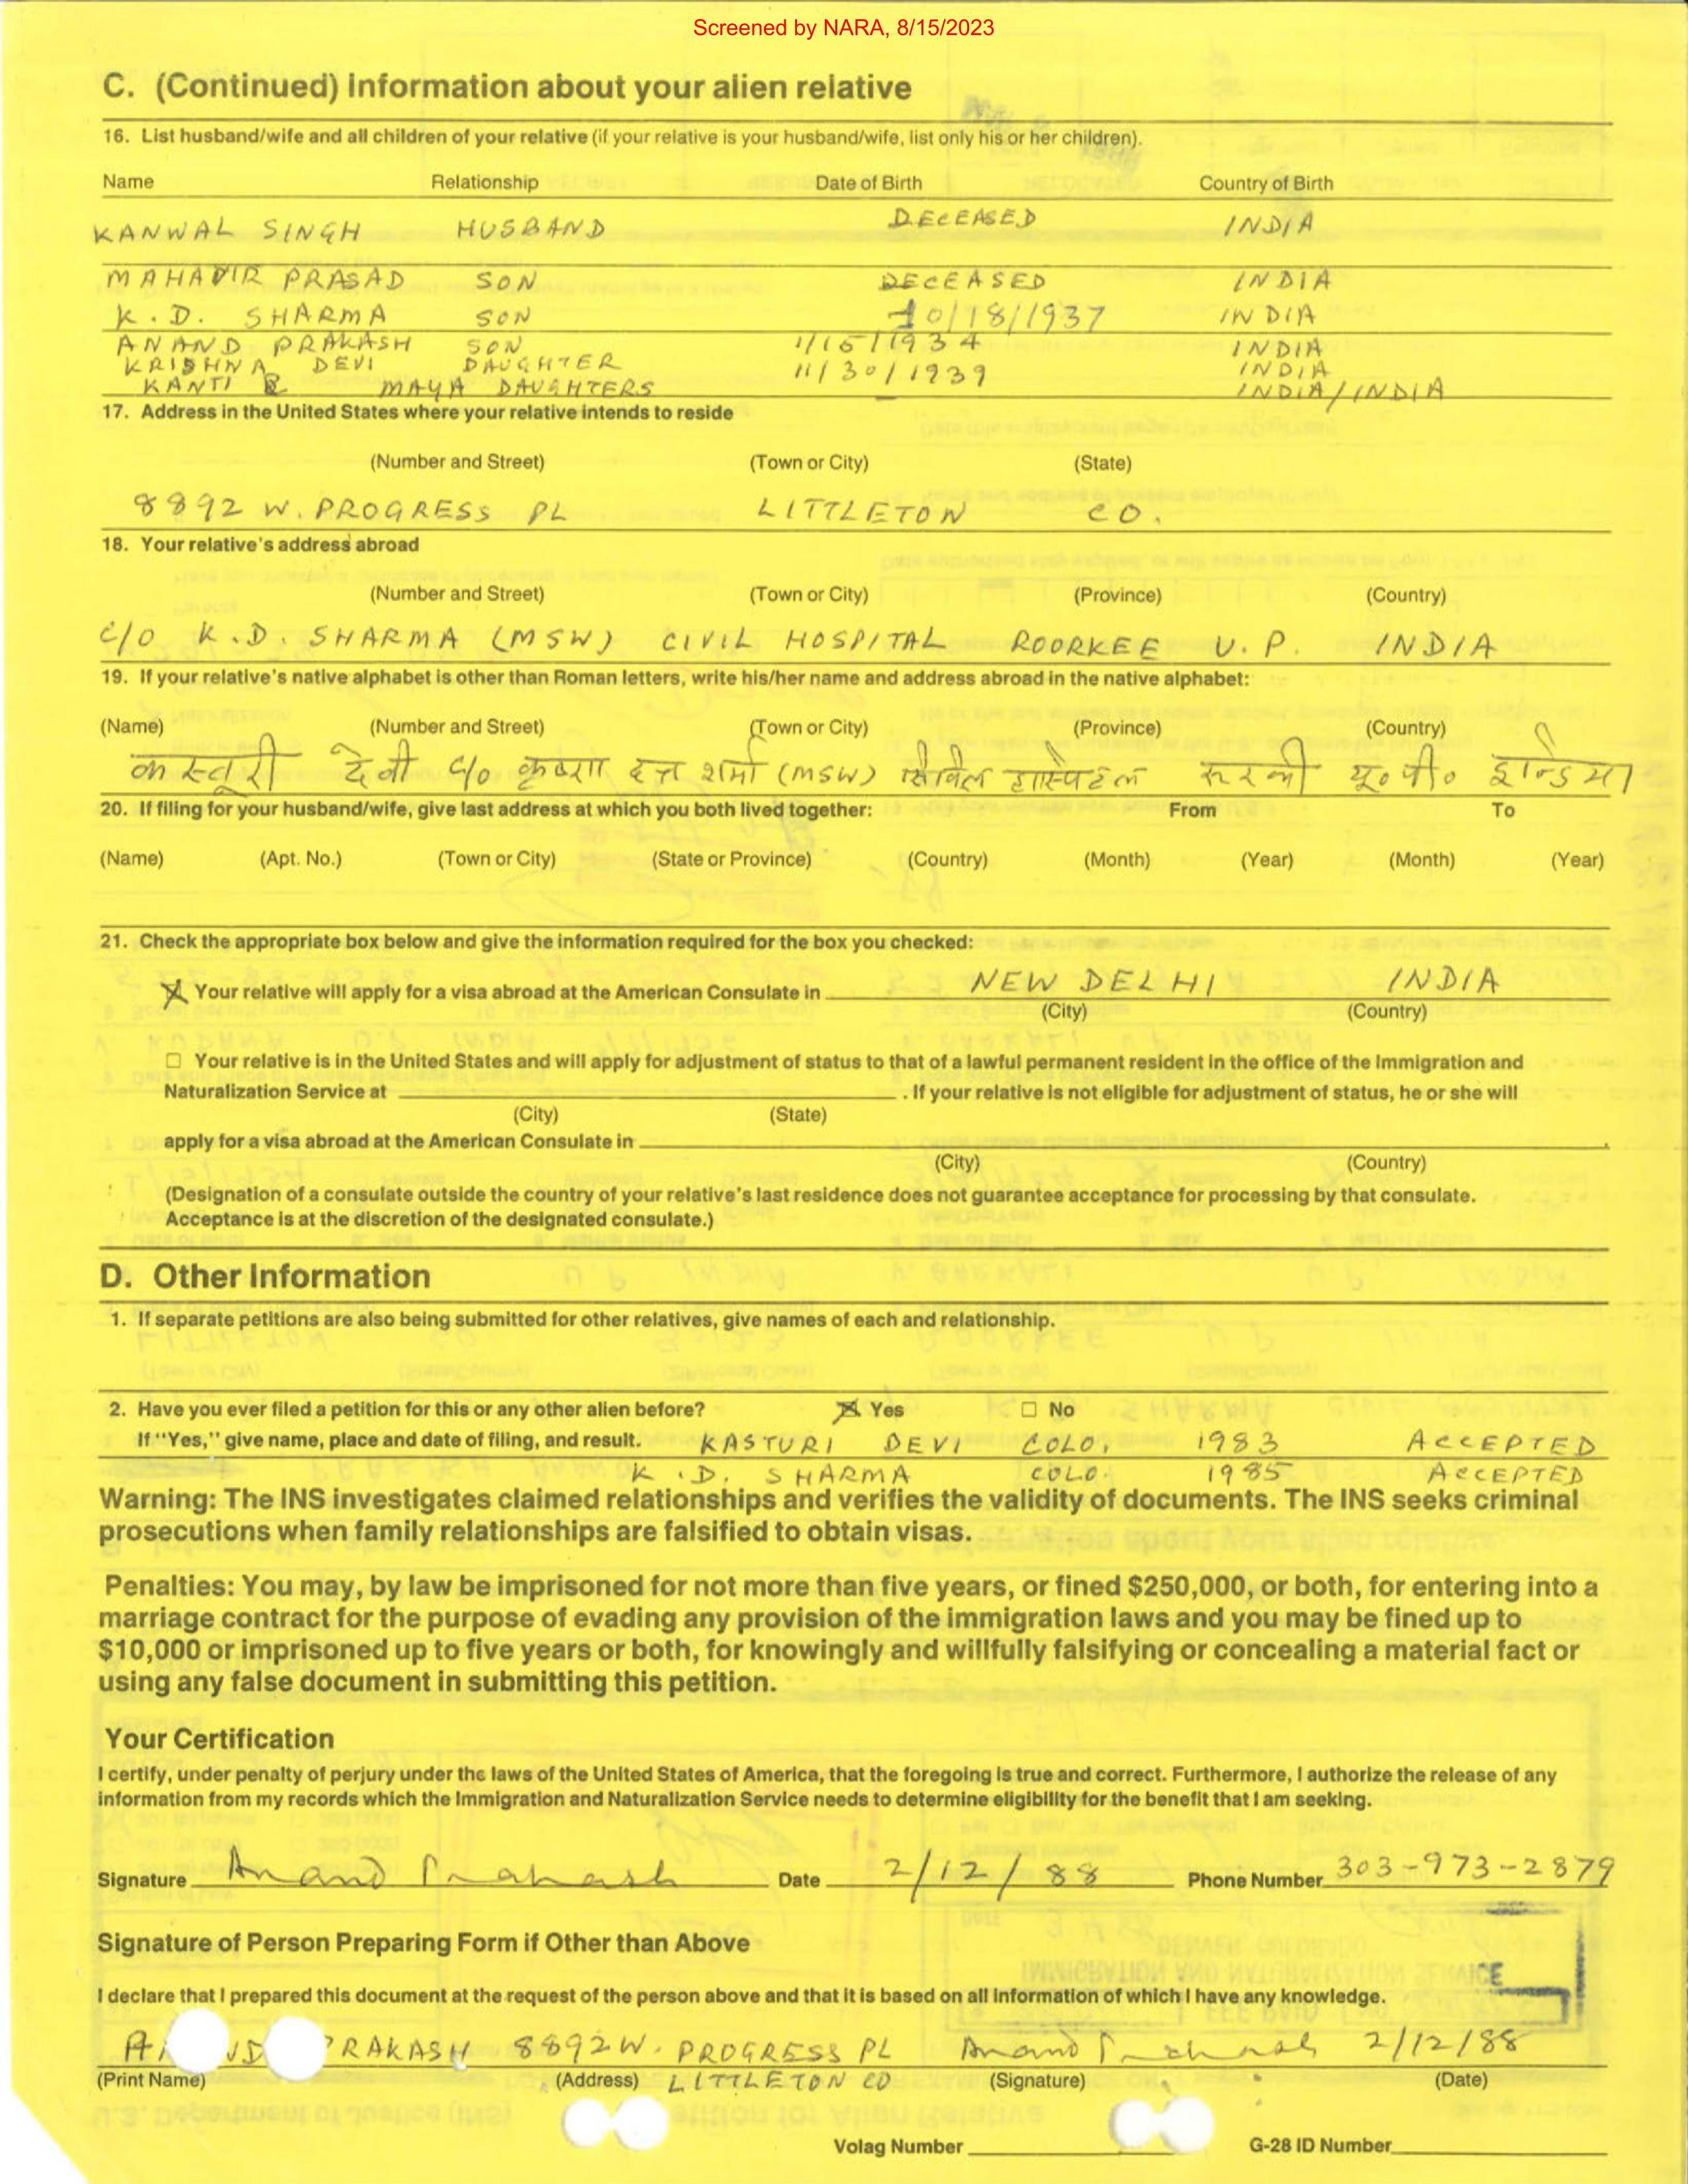 Screened by NARA, 8/15/2023
C. (Continued) Information about your alien relative
16. List husband/wife and all children of your relative (if your relative is your husband/wife, list only his or her children).
Name Relationship Date of Birth Country of Birth
KANWAL SINGH HUSBAND DECEASED INDIA
MAHAVIR PRASAD SON DECEASED INDIA
K. D. SHARMA SON 10/18/1937 INDIA
ANAND PRAKASH SON 1/15/1934 INDIA
KRISHNA DEVI DAUGHTER 11/30/1939 INDIA
KANTI & MAYA DAUGHTERS INDIA/INDIA
17. Address in the United States where your relative intends to reside
(Number and Street) (Town or City) (State)
8892 W. PROGRESS PL LITTLETON CO.
18. Your relative's address abroad
(Number and Street) (Town or City) (Province) (Country)
C/O K.D. SHARMA (MSW) CIVIL HOSPITAL ROORKEE U.P. INDIA
19. If your relative's native alphabet is other than Roman letters, write his/her name and address abroad in the native alphabet:
(Name) (Number and Street) (Town or City) (Province) (Country)
कस्तूरी देवी C/O कृष्ण दत्त शर्मा (MSW) सिविल हास्पिटल रुरकी यू०पी०
20. If filing for your husband/wife, give last address at which you both lived together: From To
(Name) (Apt. No.) (Town or City) (State or Province) (Country) (Month) (Year) (Month) (Year)
21. Check the appropriate box below and give the information required for the box you checked:
Your relative will apply for a visa abroad at the American Consulate in NEW DELHI INDIA
(City) (Country)
☐ Your relative is in the United States and will apply for adjustment of status to that of a lawful permanent resident in the office of the Immigration and
Naturalization Service at . If your relative is not eligible for adjustment of status, he or she will
(City) (State)
apply for a visa abroad at the American Consulate in .
(City) (Country)
(Designation of a consulate outside the country of your relative's last residence does not guarantee acceptance for processing by that consulate.
Acceptance is at the discretion of the designated consulate.)
D. Other Information
1. If separate petitions are also being submitted for other relatives, give names of each and relationship.
2. Have you ever filed a petition for this or any other alien before? ☒ Yes ☐ No
If "Yes," give name, place and date of filing, and result. KASTURI DEVI COLO. 1983 ACCEPTED
K.D. SHARMA COLO. 1985 ACCEPTED
Warning: The INS investigates claimed relationships and verifies the validity of documents. The INS seeks criminal
prosecutions when family relationships are falsified to obtain visas.
Penalties: You may, by law be imprisoned for not more than five years, or fined $250,000, or both, for entering into a
marriage contract for the purpose of evading any provision of the immigration laws and you may be fined up to
$10,000 or imprisoned up to five years or both, for knowingly and willfully falsifying or concealing a material fact or
using any false document in submitting this petition.
Your Certification
I certify, under penalty of perjury under the laws of the United States of America, that the foregoing is true and correct. Furthermore, I authorize the release of any
information from my records which the Immigration and Naturalization Service needs to determine eligibility for the benefit that I am seeking.
Signature Anand Prakash Date 2/12/88 Phone Number 303-973-2879
Signature of Person Preparing Form if Other than Above
I declare that I prepared this document at the request of the person above and that it is based on all information of which I have any knowledge.
PRAKASH 8892 W. PROGRESS PL Anand Prakash 2/12/88
(Print Name) (Address) LITTLETON CO (Signature) (Date)
Volag Number G-28 ID Number